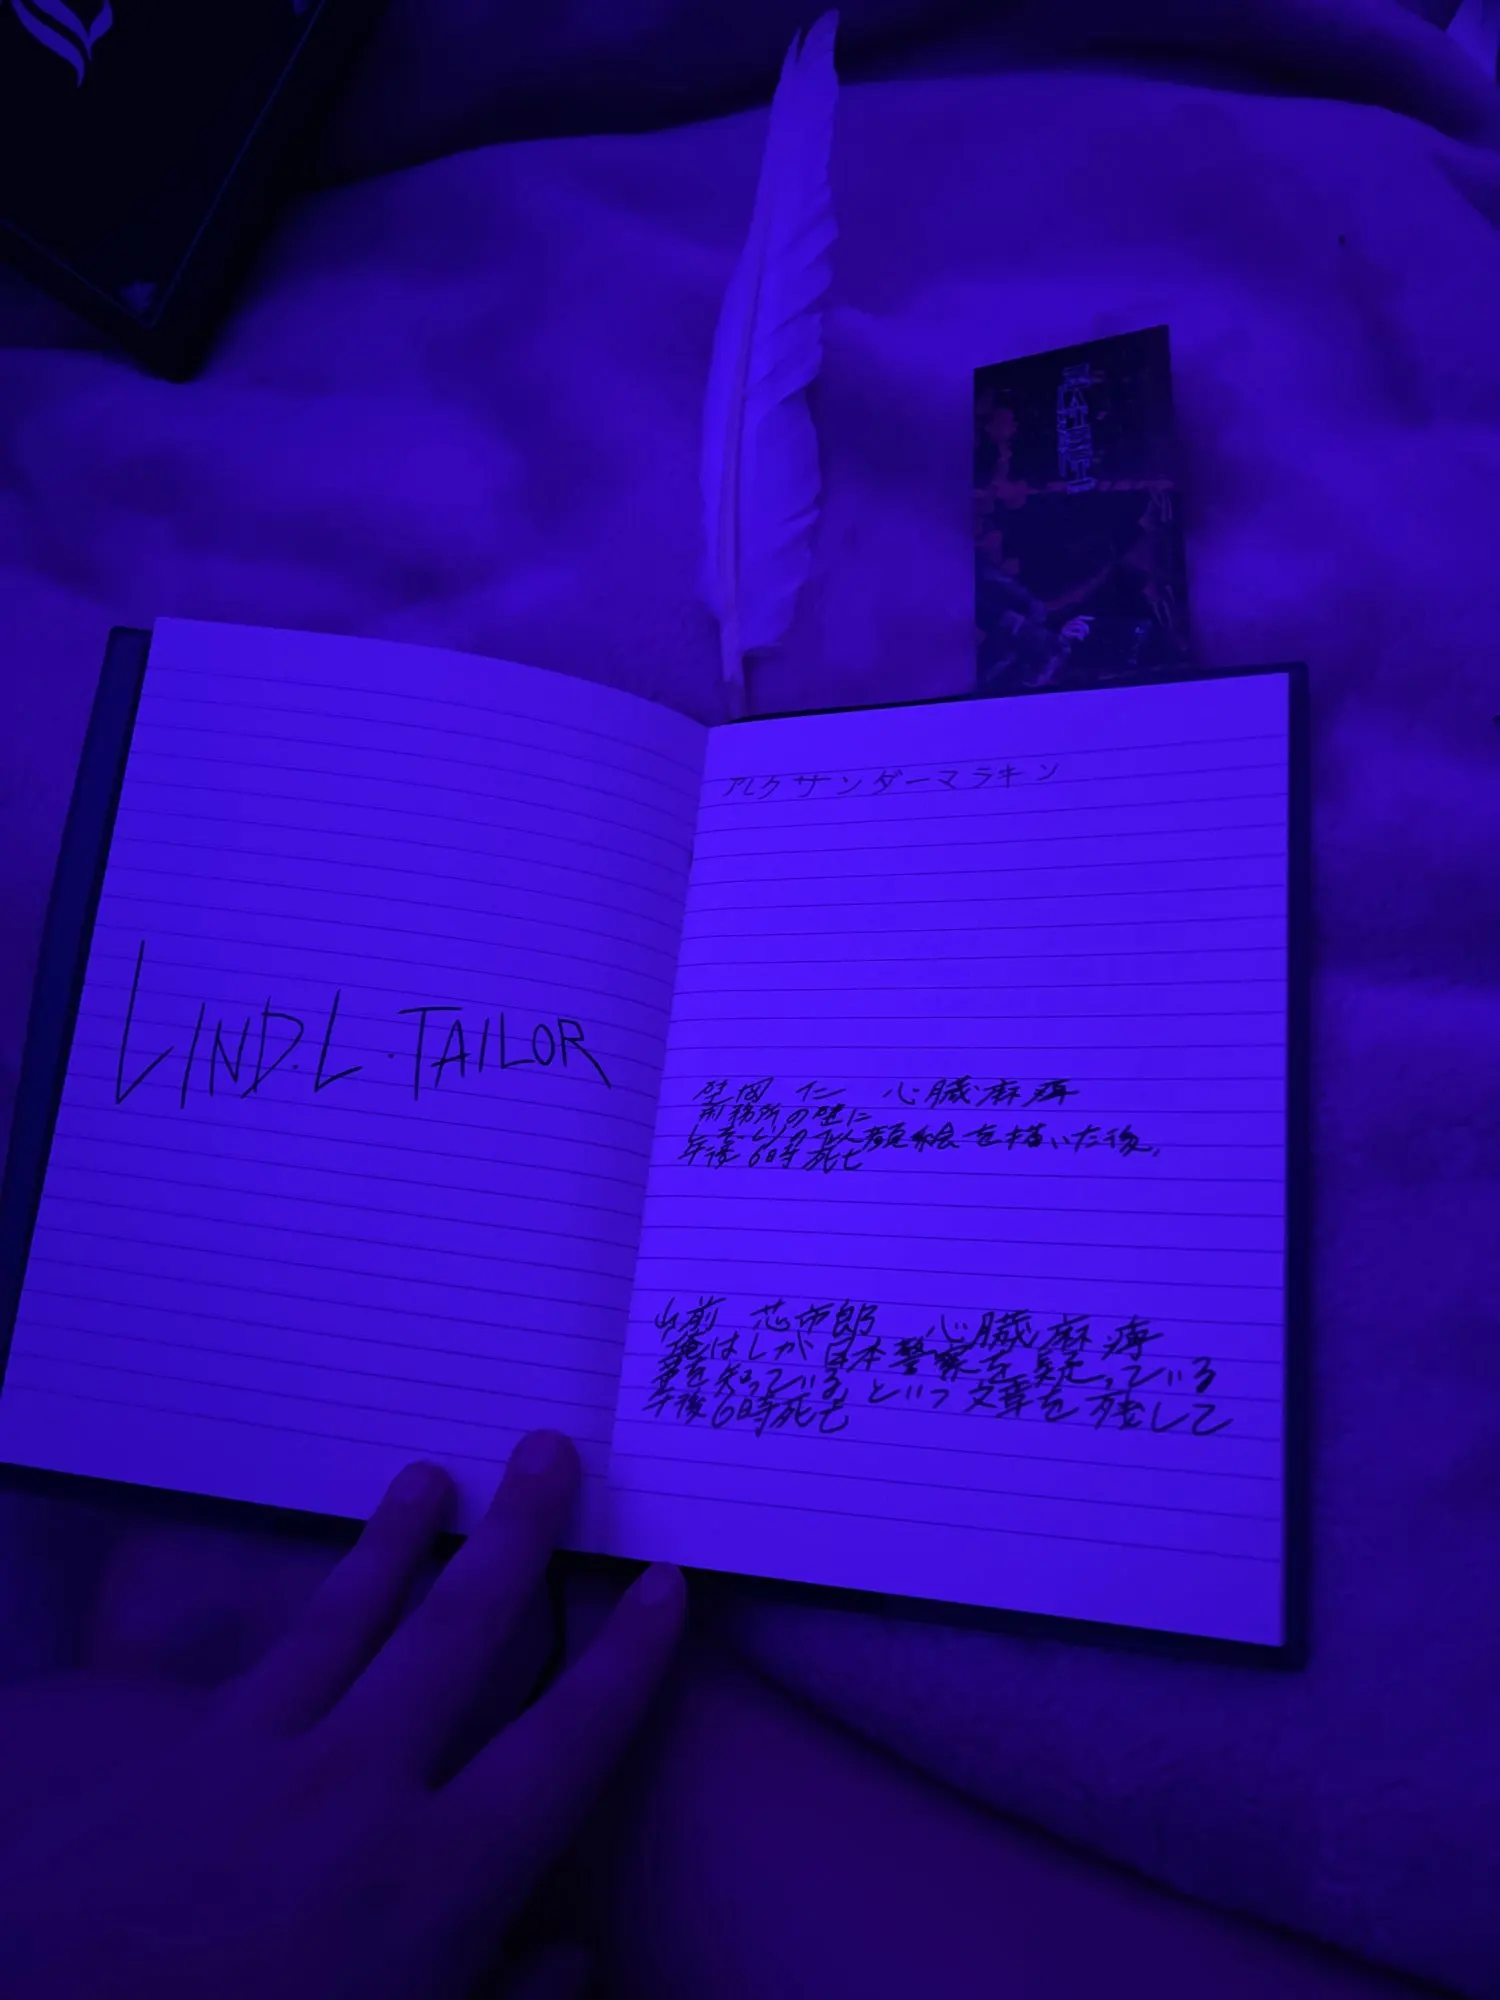 LIND.L.TAILOR
アレクサンダーマラキン
岡 仁 心臓麻痺
刑務所の壁に
の似顔絵を描いた後、
午後6時死亡
山前 芯市郎 心臓麻痺
俺はLが日本警察を疑っている
事を知っている という文章を残して
午後6時死亡